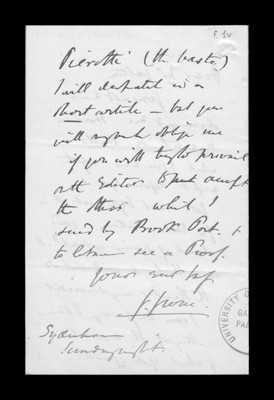 Pierotti (the beast)
I will despatch in a
short article — but you
will oblige me
if you will try to prevail
Editor to put
the which I
send by Book Post. &
to let me see a Proof.
Yours
G Grove.
Sydenham
Sunday night.
UNIVERSITY